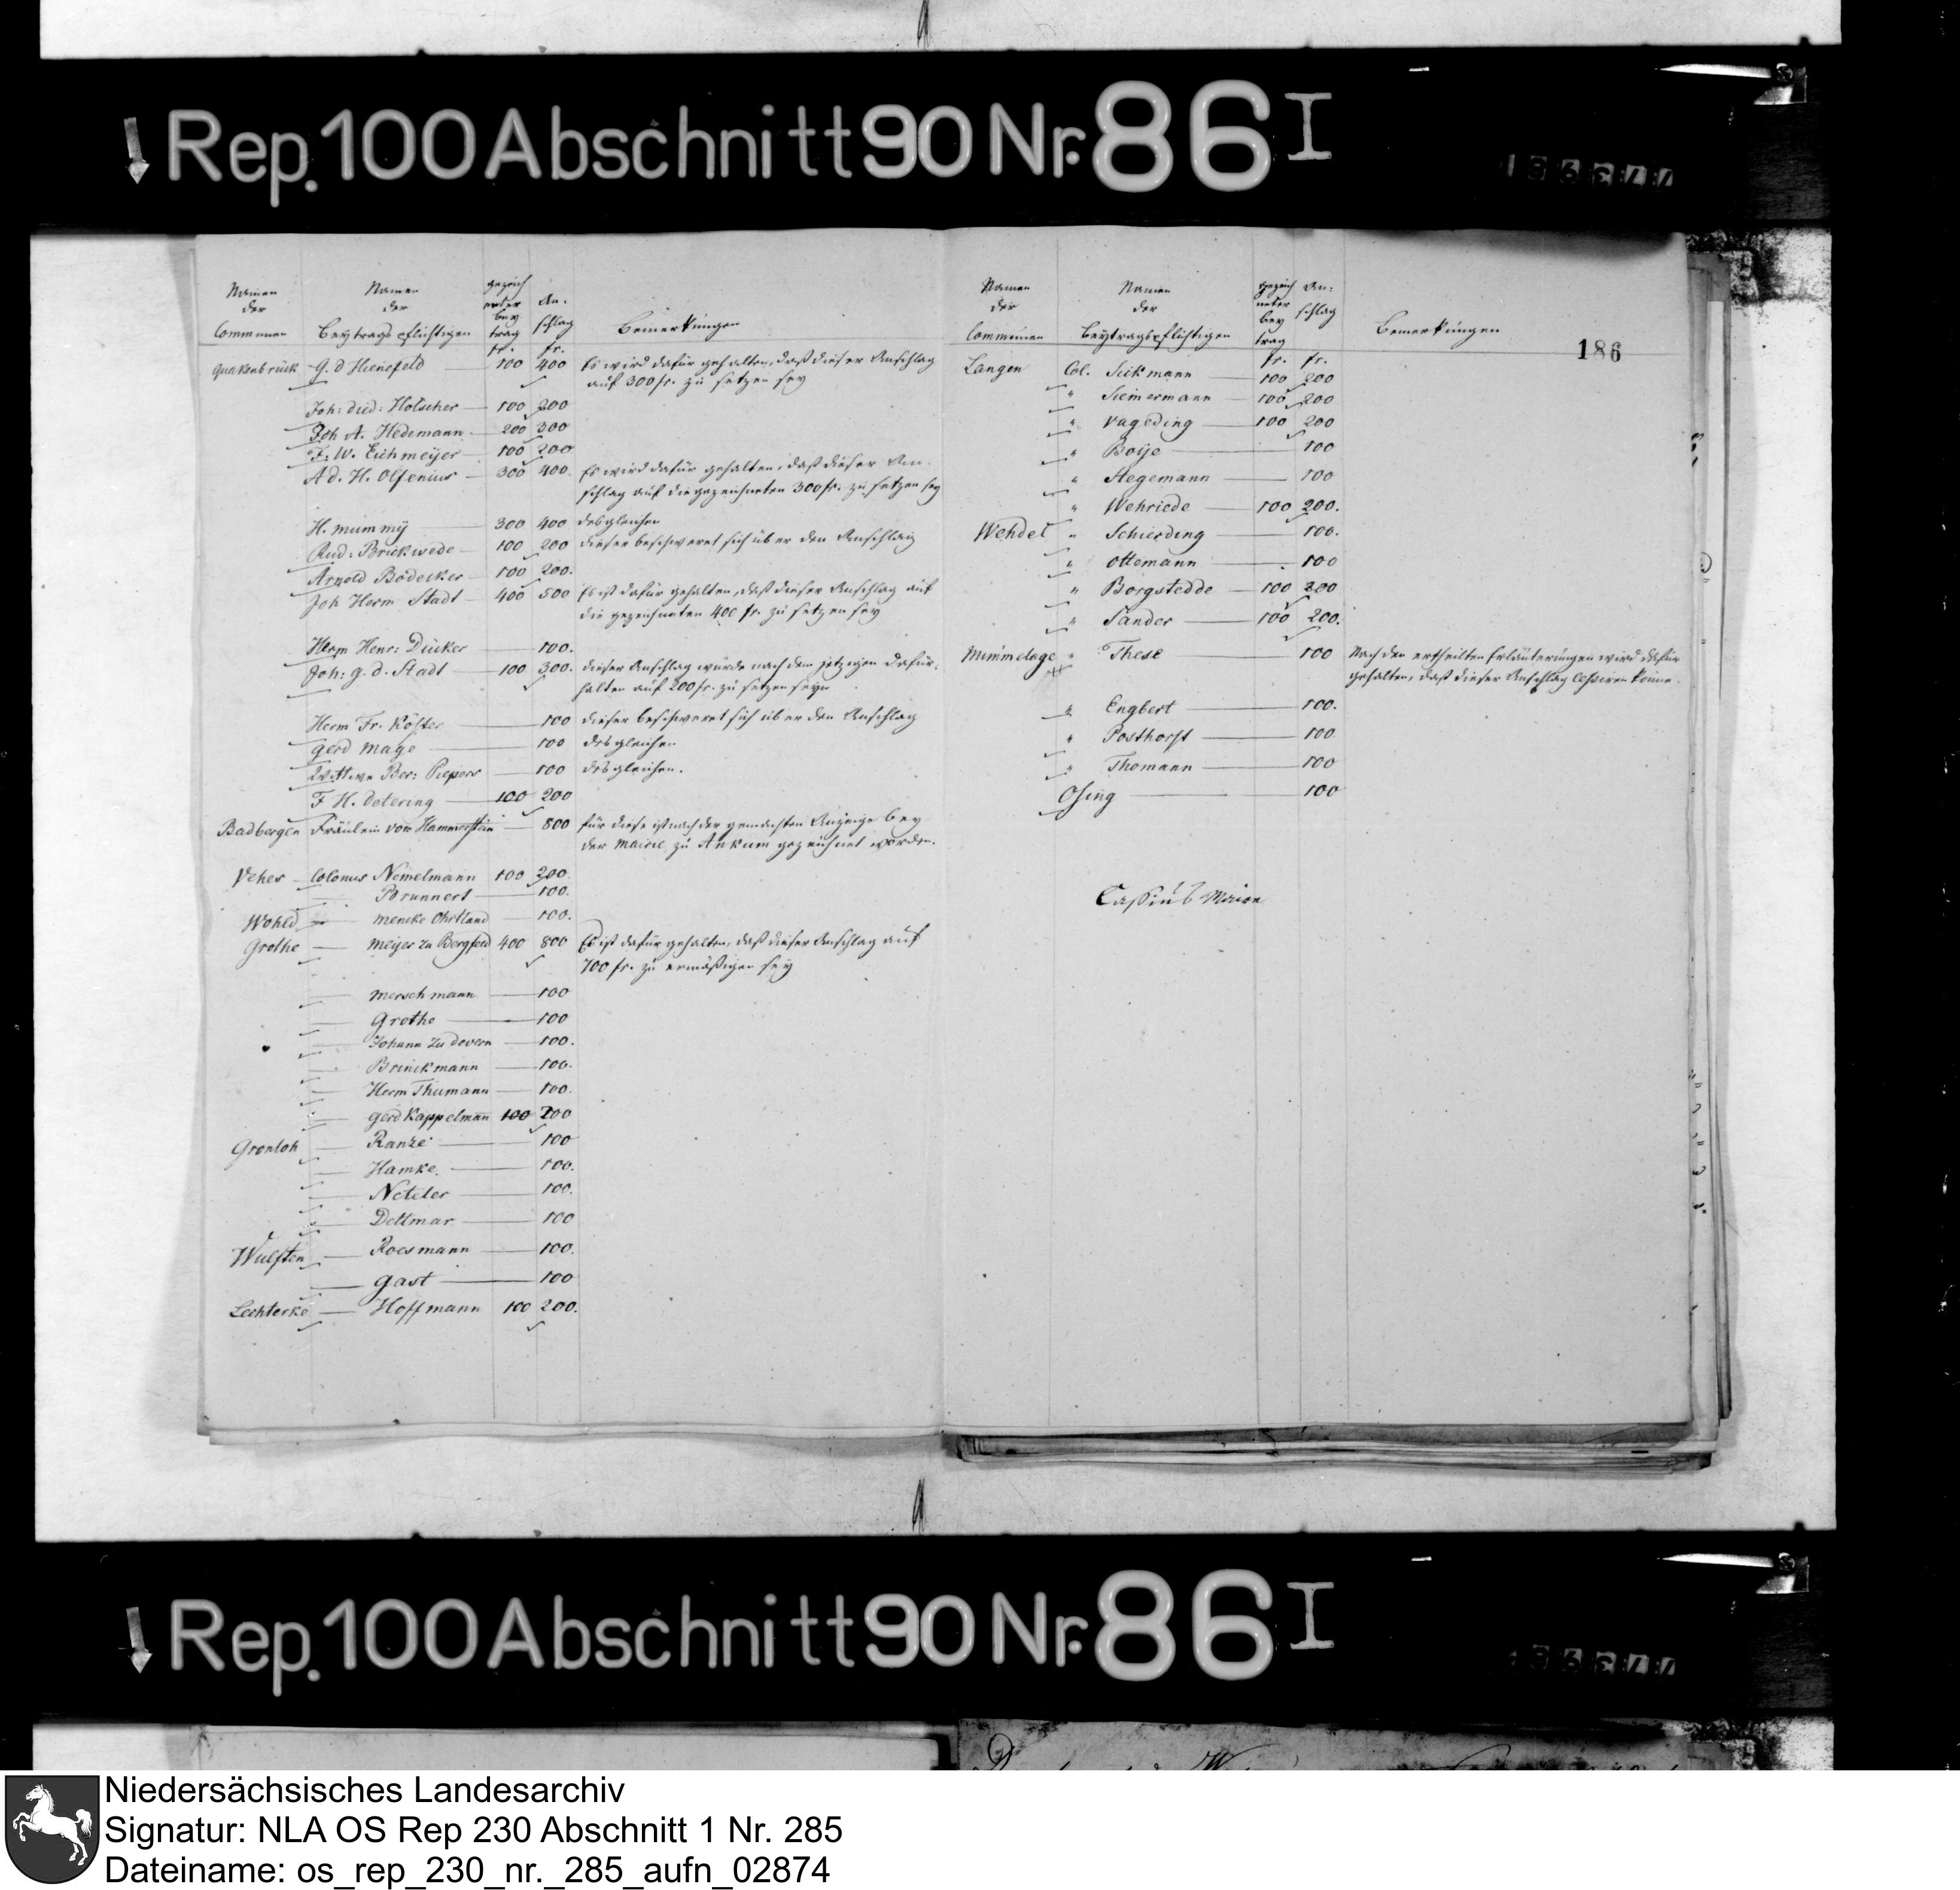 Rep. 100 Abschnitt 90 Nr. 86 I
Namen der Communen
Namen der Beytragspflichtigen
gezeichneter beytrag
Anschlag
Bemerkungen
fr. fr.
Quakenbrück G. d Hienefeld 100 400 Es wird dafür gehalten, daß dieser Anschlag
auf 300 fr. zu setzen sey
Joh: died: Holscher 100 200
Joh A. Hedemann 200 300
F. W. Eichmeyer 100 200
Ad. H. Olfenius 300 400 Es wird dafür gehalten, daß dieser An-
schlag auf die gezeichneten 300 fr. zu setzen sey
H. mummÿ 300 400 desgleichen
Rud: Brickwede 100 200 dieser beschweret sich über den Anschlag
Arnold Bödecker 100 200.
Joh Herm Stadt 400 500 Es ist dafür gehalten, daß dieser Anschlag auf
die gezeichneten 400 fr. zu setzen sey
Herm Henr: Dücker 100.
Joh: g. d. Stadt 100 300. dieser Anschlag würde nach dem jetzigen Dafür-
halten auf 200 fr. zu setzen seyn
Herm Fr. Köster 100 dieser beschweret sich über den Anschlag
gerd mage 100 desgleichen
Wittwe Ber: Piepers 100 desgleichen.
F H. detering 100 200
Badbergen Fräulein von Hammerstein 800 für diese ist nach der gemachten Anzeige bey
der Mairie zu Ankum gezeichnet worden.
Vehes Colonus Nemelmann 100 200
Brunnert 100.
Wohld mencke Ohrtland 100.
Grothe meyer zu Bergfeld 400 800 Es ist dafür gehalten, daß dieser Anschlag auf
700 fr. zu ermäßigen sey
merschmann 100
Grothe 100
Johann zu devern 100.
Brinckmann 100.
Herm Thumann 100.
gerd Kappelmann 100 200
Gronloh Ranze 100
Hamke. 100.
Neteler 100.
Dettmar 100
Wulften Roesmann 100.
gast 100
Lechterke Hoffmann 100 200.
Namen der Communen
Namen der Beytragspflichtigen
gezeichneter bey trag
Anschlag
Bemerkungen
186
fr. fr.
Langen Col. Sickmann 100 200
" Siemermann 100 200
" Vageding 100 200
" Boije 100
" Stegemann 100
" Wehriede 100 200.
Wehdel " Schierding 100.
" Ottemann 100
" Borgstedde 100 200
" Sander 100 200.
Mimmelage " These 100 Nach den ertheilten Erläuterungen wird dafür
gehalten, daß dieser Anschlag cessiren könne.
" Engbert 100.
" Posthorst 100
" Thomann 100
Osing 100
Cassius Maire
Rep. 100 Abschnitt 90 Nr. 86 I
Niedersächsisches Landesarchiv
Signatur: NLA OS Rep 230 Abschnitt 1 Nr. 285
Dateiname: os_rep_230_nr._285_aufn_02874